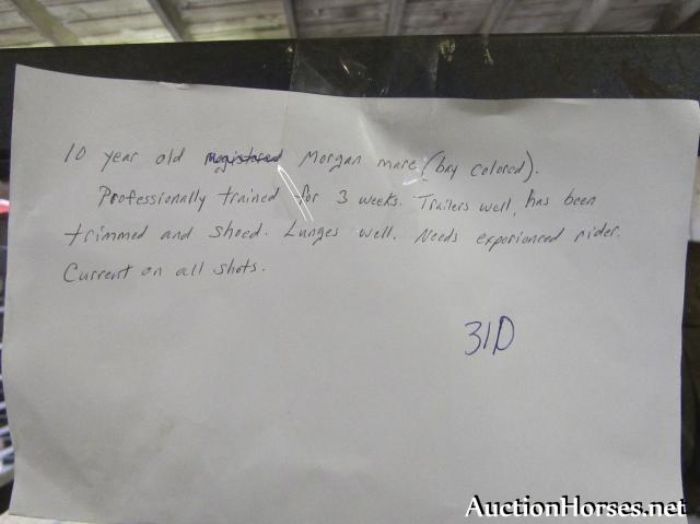 10 year old registered Morgan mare (bay colored).
Professionally trained for 3 weeks. Trailers well, has been
trimmed and shoed. Lunges well. Needs experienced rider.
Current on all shots.
31D
AuctionHorses.net